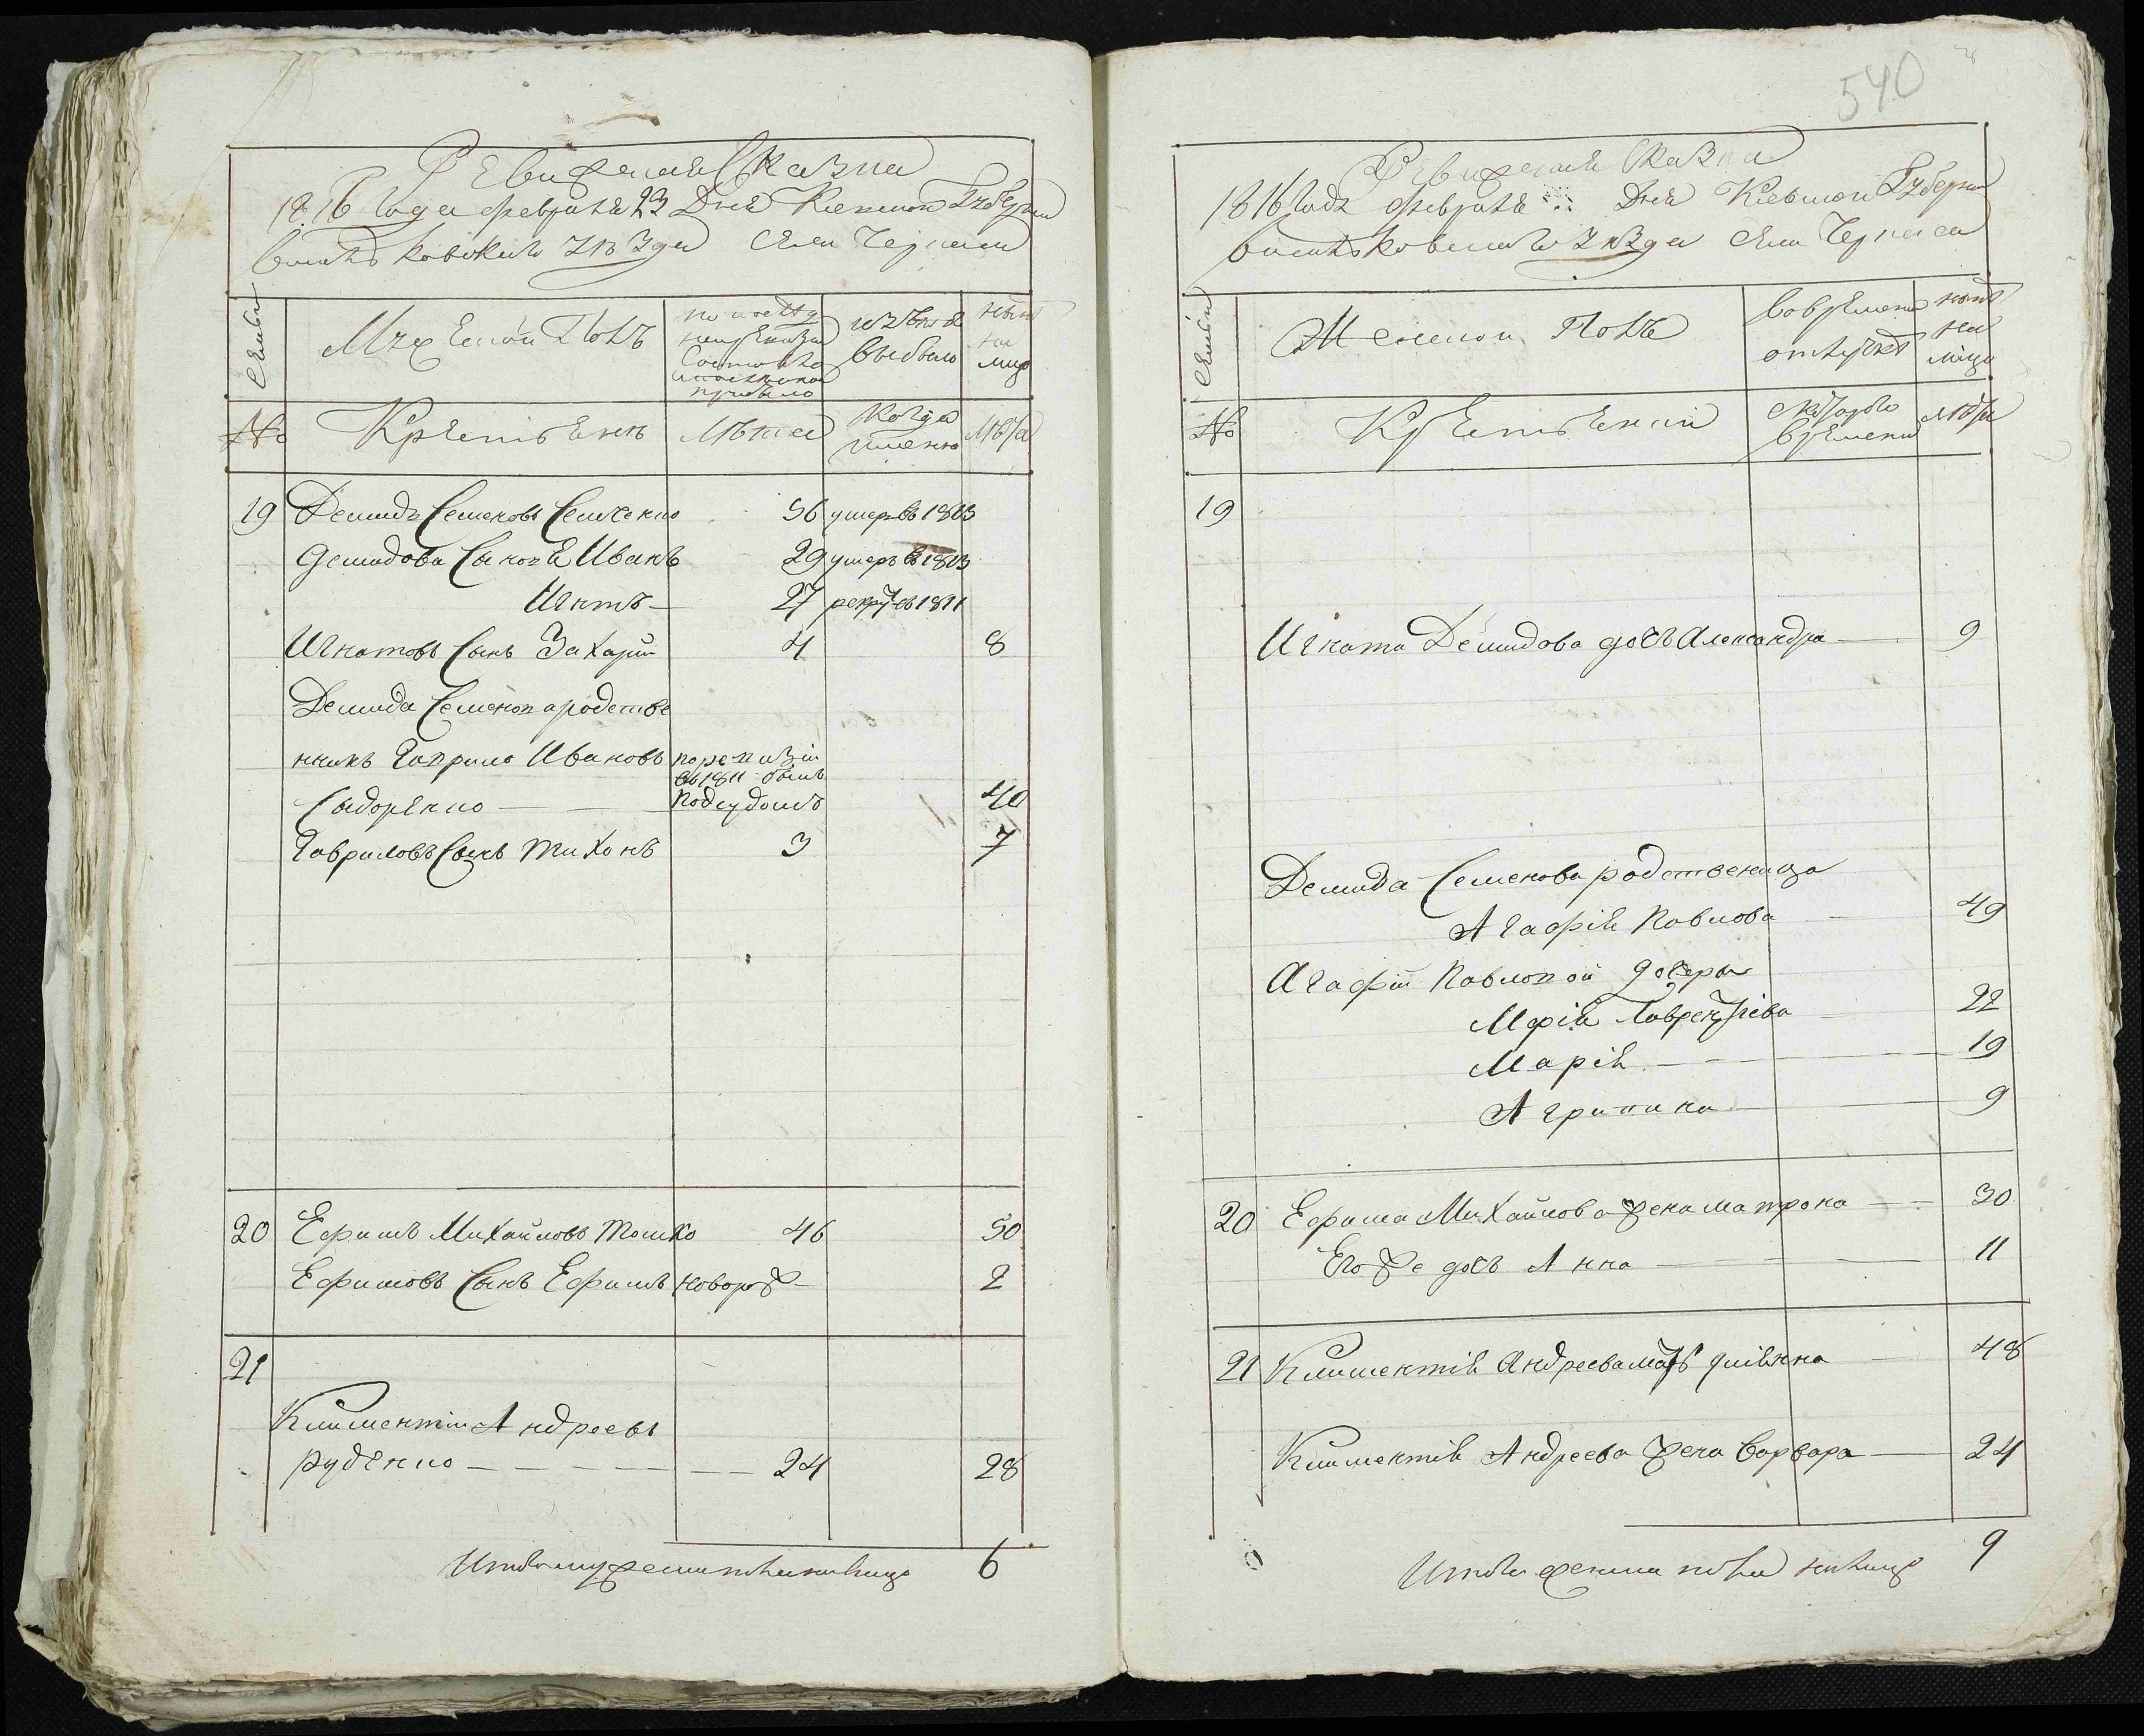 Ревижская Сказка
1816 Года февраля 23 Дня Киевской Губернии
Василь ковскаго уѣзда Села Черкаса
Семьи
Мужескои Полъ
по последней
ревизии
Состояло
и после оной
прибыло
изъ того
Выбыло
ныне
на
лицо
№
Крестьянъ
Лѣта
Когда
имянно
Лѣта
19 Демидъ Семеновъ Семченко 56 умеръ въ 1813
Демидова Сыновя Иванъ 29 умеръ въ 1813
Игнтъ 27 рекрут въ 1811
Игнатовъ Сынъ Захарий 4 8
Демида Семенова родстве
нникъ Гаврило Ивановъ по ревизии
въ 1811 былъ
Сидоренко Подсудомъ 40
Гавриловъ Сынъ Тихонъ 3 7
20 Ефимъ Михайловъ Томко 46 50
Ефимовъ Сынъ Ефимъ новорож 2
21
Климентий Андреевъ
Руденко 24 28
Итого мужеска пола на лицо 6
540
Ревижская Сказка
1816 Года февраля Дня Киевской Губернии
Василь ковскаго уѣзда Села Черкаса
Семьи
Женскои Полъ
Во временной
отлучке
ныне
на
лицо
№
Крестьянкий
Скотораго
времени
лѣта
19
Игната Демидова дочъ Александра 9
Демида Семенова родственица
Агафия Павлова 49
Агафии Павловой дочеры
Мария Лаврентиева 22
Мария 19
Агрипина 9
20 Ефима Михайлова жена матрона 30
Его же дочъ Анна 11
21 Климентия Андреева мать улияна 48
Климентия Андреева жена Варвара 24
Итого женска пола на лицо 9